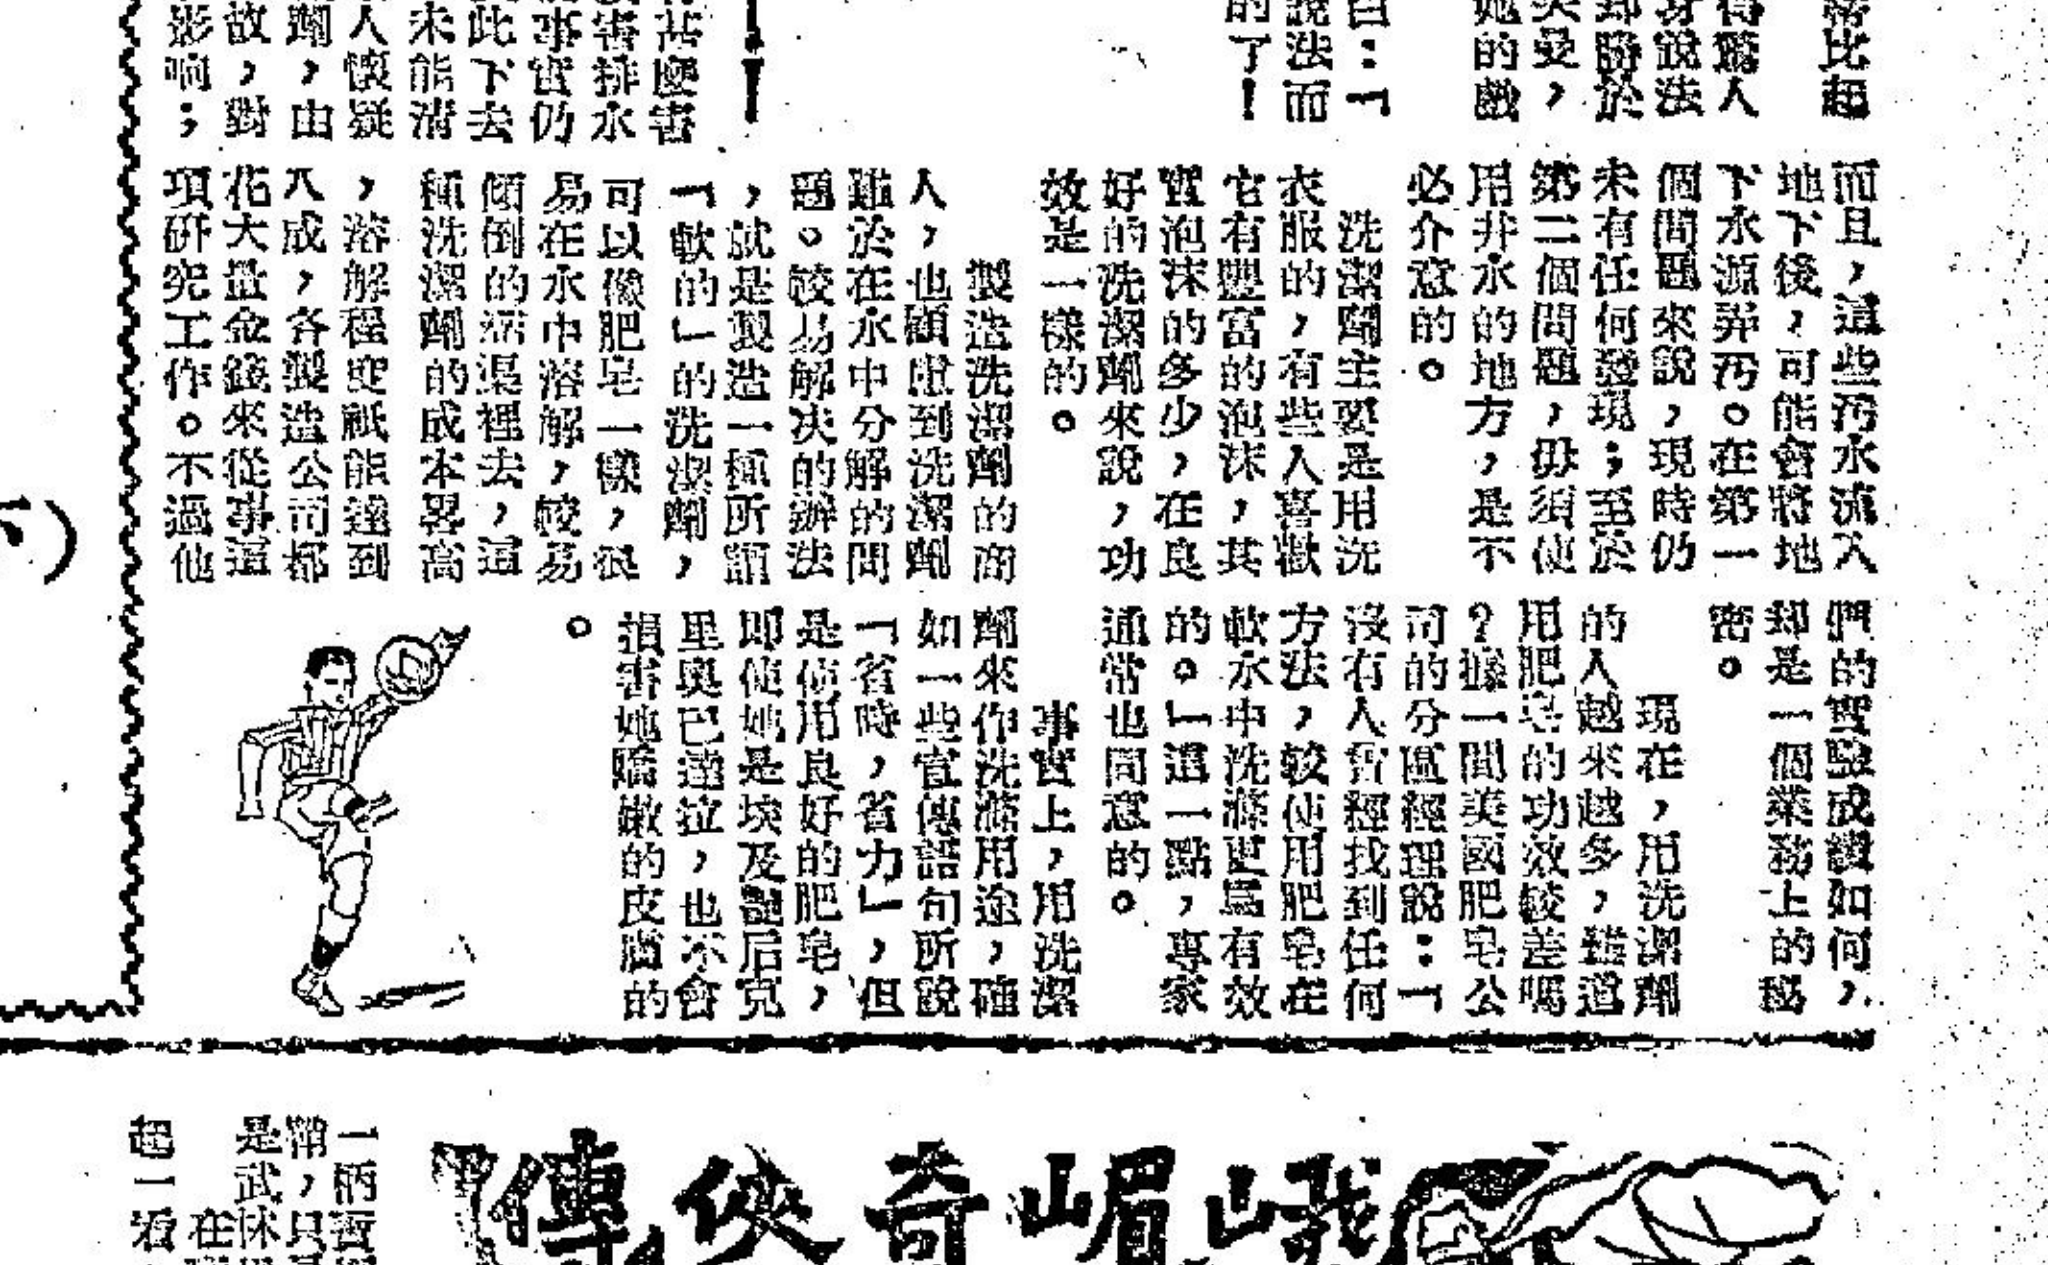 落比起
得驚人
身說法
却勝於
美曼，
她的戲
白：「
說法而
的了！
有甚麽害
故害排水
事實仍
此下去
未能清
人懷疑
劑，由
故，對
影响；
而且，這些污水流入
地下後，可能會將地
下水源弄汚。在第一
個問題來說，現時仍
未有任何發現；至於
第二個問題，毋須使
用井水的地方，是不
必介意的。
洗潔劑主要是用洗
衣服的，有些人喜歡
它有豐富的泡沫，其
實泡沫的多少，在良
好的洗潔劑來說，功
效是一樣的。
製造洗潔劑的商
人，也顧慮到洗潔劑
難於在水中分解的問
題。較易解决的辦法
，就是製造一種所謂
「軟的」的洗潔劑，
可以像肥皂一樣，很
易在水中溶解，較易
傾倒的溝渠裡去，這
種洗潔劑的成本畧高
，溶解程度祇能達到
八成，各製造公司都
花大量金錢來從事這
項研究工作。不過他
們的實驗成績如何，
却是一個業務上的秘
密。
現在，用洗潔劑
的人越來越多，難道
用肥皂的功效較差嗎
？據一間美國肥皂公
司的分區經理說：「
沒有人曾經找到任何
方法，較使用肥皂在
軟水中洗滌更爲有效
的。」這一點，專家
通常也同意的。
事實上，用洗潔
劑來作洗滌用途，確
如一些宣傳語句所說
「省時，省力」，但
是使用良好的肥皂，
即使她是埃及艷后克
里奥已達拉，也不會
損害她嬌嫩的皮膚的
。
下）
峨嵋奇俠傳
一柄
鞘，只
是武林
在
起一看